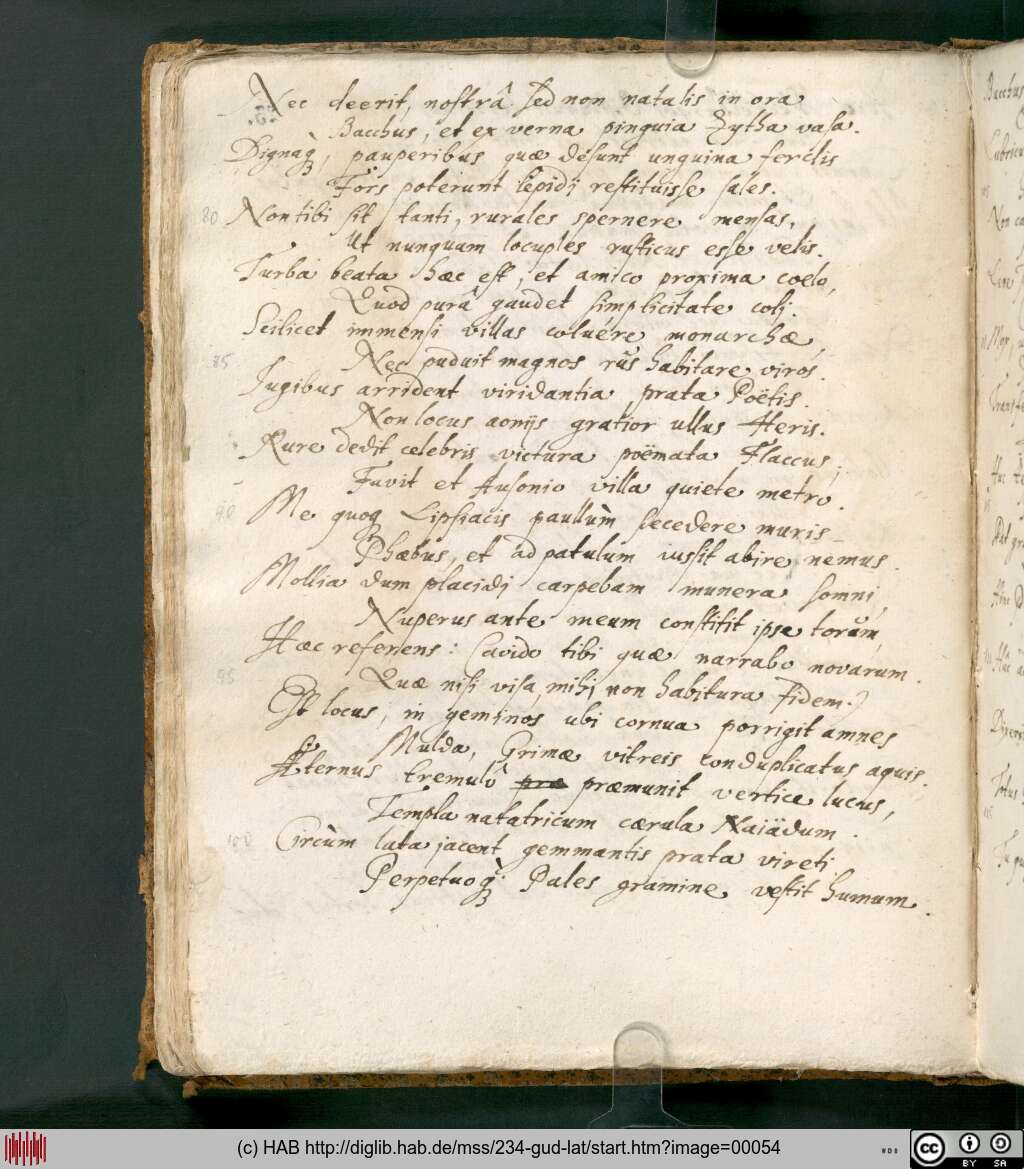 Nec deerit, nostrâ sed non natalis in ora
Bacchus, et ex verna pinguia Zytha vasa.
Dignaq;, pauperibus quæ desunt unguina ferclis
Fors poterunt lepidi restituisse sales.
80 Non tibi sit tanti, rurales spernere mensas,
Ut nunquam locuples rusticus esse velis.
Turba beata hæc est, et amico proxima coelo,
Quod purâ gaudet simplicitate coli.
Scilicet immensi villas coluere monarchæ,
85 Nec puduit magnos rus habitare viros.
Jugibus arrident viridantia prata Poëtis.
Non locus aonijs gratior ullus Heris.
Rure dedit celebris victura poëmata Flaccus,
Fuvit et Ausonio villa quiete metro.
90 Me quoq; Lipsiacis paullùm secedere muris
Phæbus, et ad patulum iussit abire nemus.
Mollia dum placidi carpebam munera somni,
Nuperus ante meum constitit ipse torum,
Hæc referens: Cavido tibi quæ narrabo novarum.
95 Quæ nisi visa mihi, non habitura fidem.
Est locus, in geminos ubi cornua porrigit amnes
Mulda, Grimæ vitreis conduplicatus aquis.
Æternus tremulô præ præmunit vertice lucus,
Templa natatricum cærula Naiädum.
100 Circùm lata jacent gemmantis prata vireti
Perpetuoq; Pales gramine vestit humum.
Bacchus
Non
(c) HAB http://diglib.hab.de/mss/234-gud-lat/start.htm?image=00054
cc BY SA